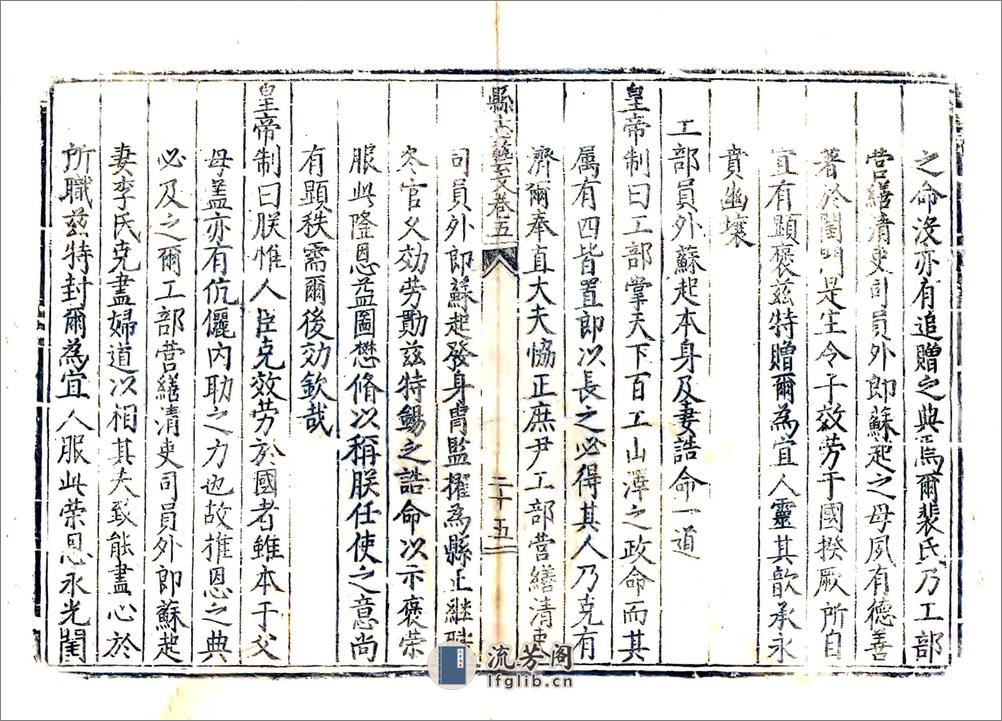 之命沒亦有追贈之典焉爾裴氏乃工部
營繕清吏司員外郎蘇起之母夙有德善
著於閨門是生令子效劳于國揆厥所自
宜有顯褒兹特贈爾為宜人靈其歆承永
賁幽壤
工部員外蘇起本身及妻誥命一道
皇帝制曰工部掌天下百工山澤之政命而其
属有四皆置郎以長之必得其人乃克有
濟爾奉直大夫恊正庶尹工部營繕清吏
司員外郎蘇起發身胄監擢為縣正繼陟
冬官久効劳勩兹特錫之誥命以示褒荣
服此隆恩益圖懋脩以稱朕任使之意尚
有顯秩需爾後効欽哉
皇帝制曰朕惟人臣克效劳於國者雖本于父
母盖亦有伉儷内助之力也故推恩之典
必及之爾工部營繕清吏司員外郎蘇起
妻李氏克盡婦道以相其夫致能盡心於
所職兹特封爾為宜人服此荣恩永光閨
縣志藝文卷五
二十五
流芳阁
lfglib.cn